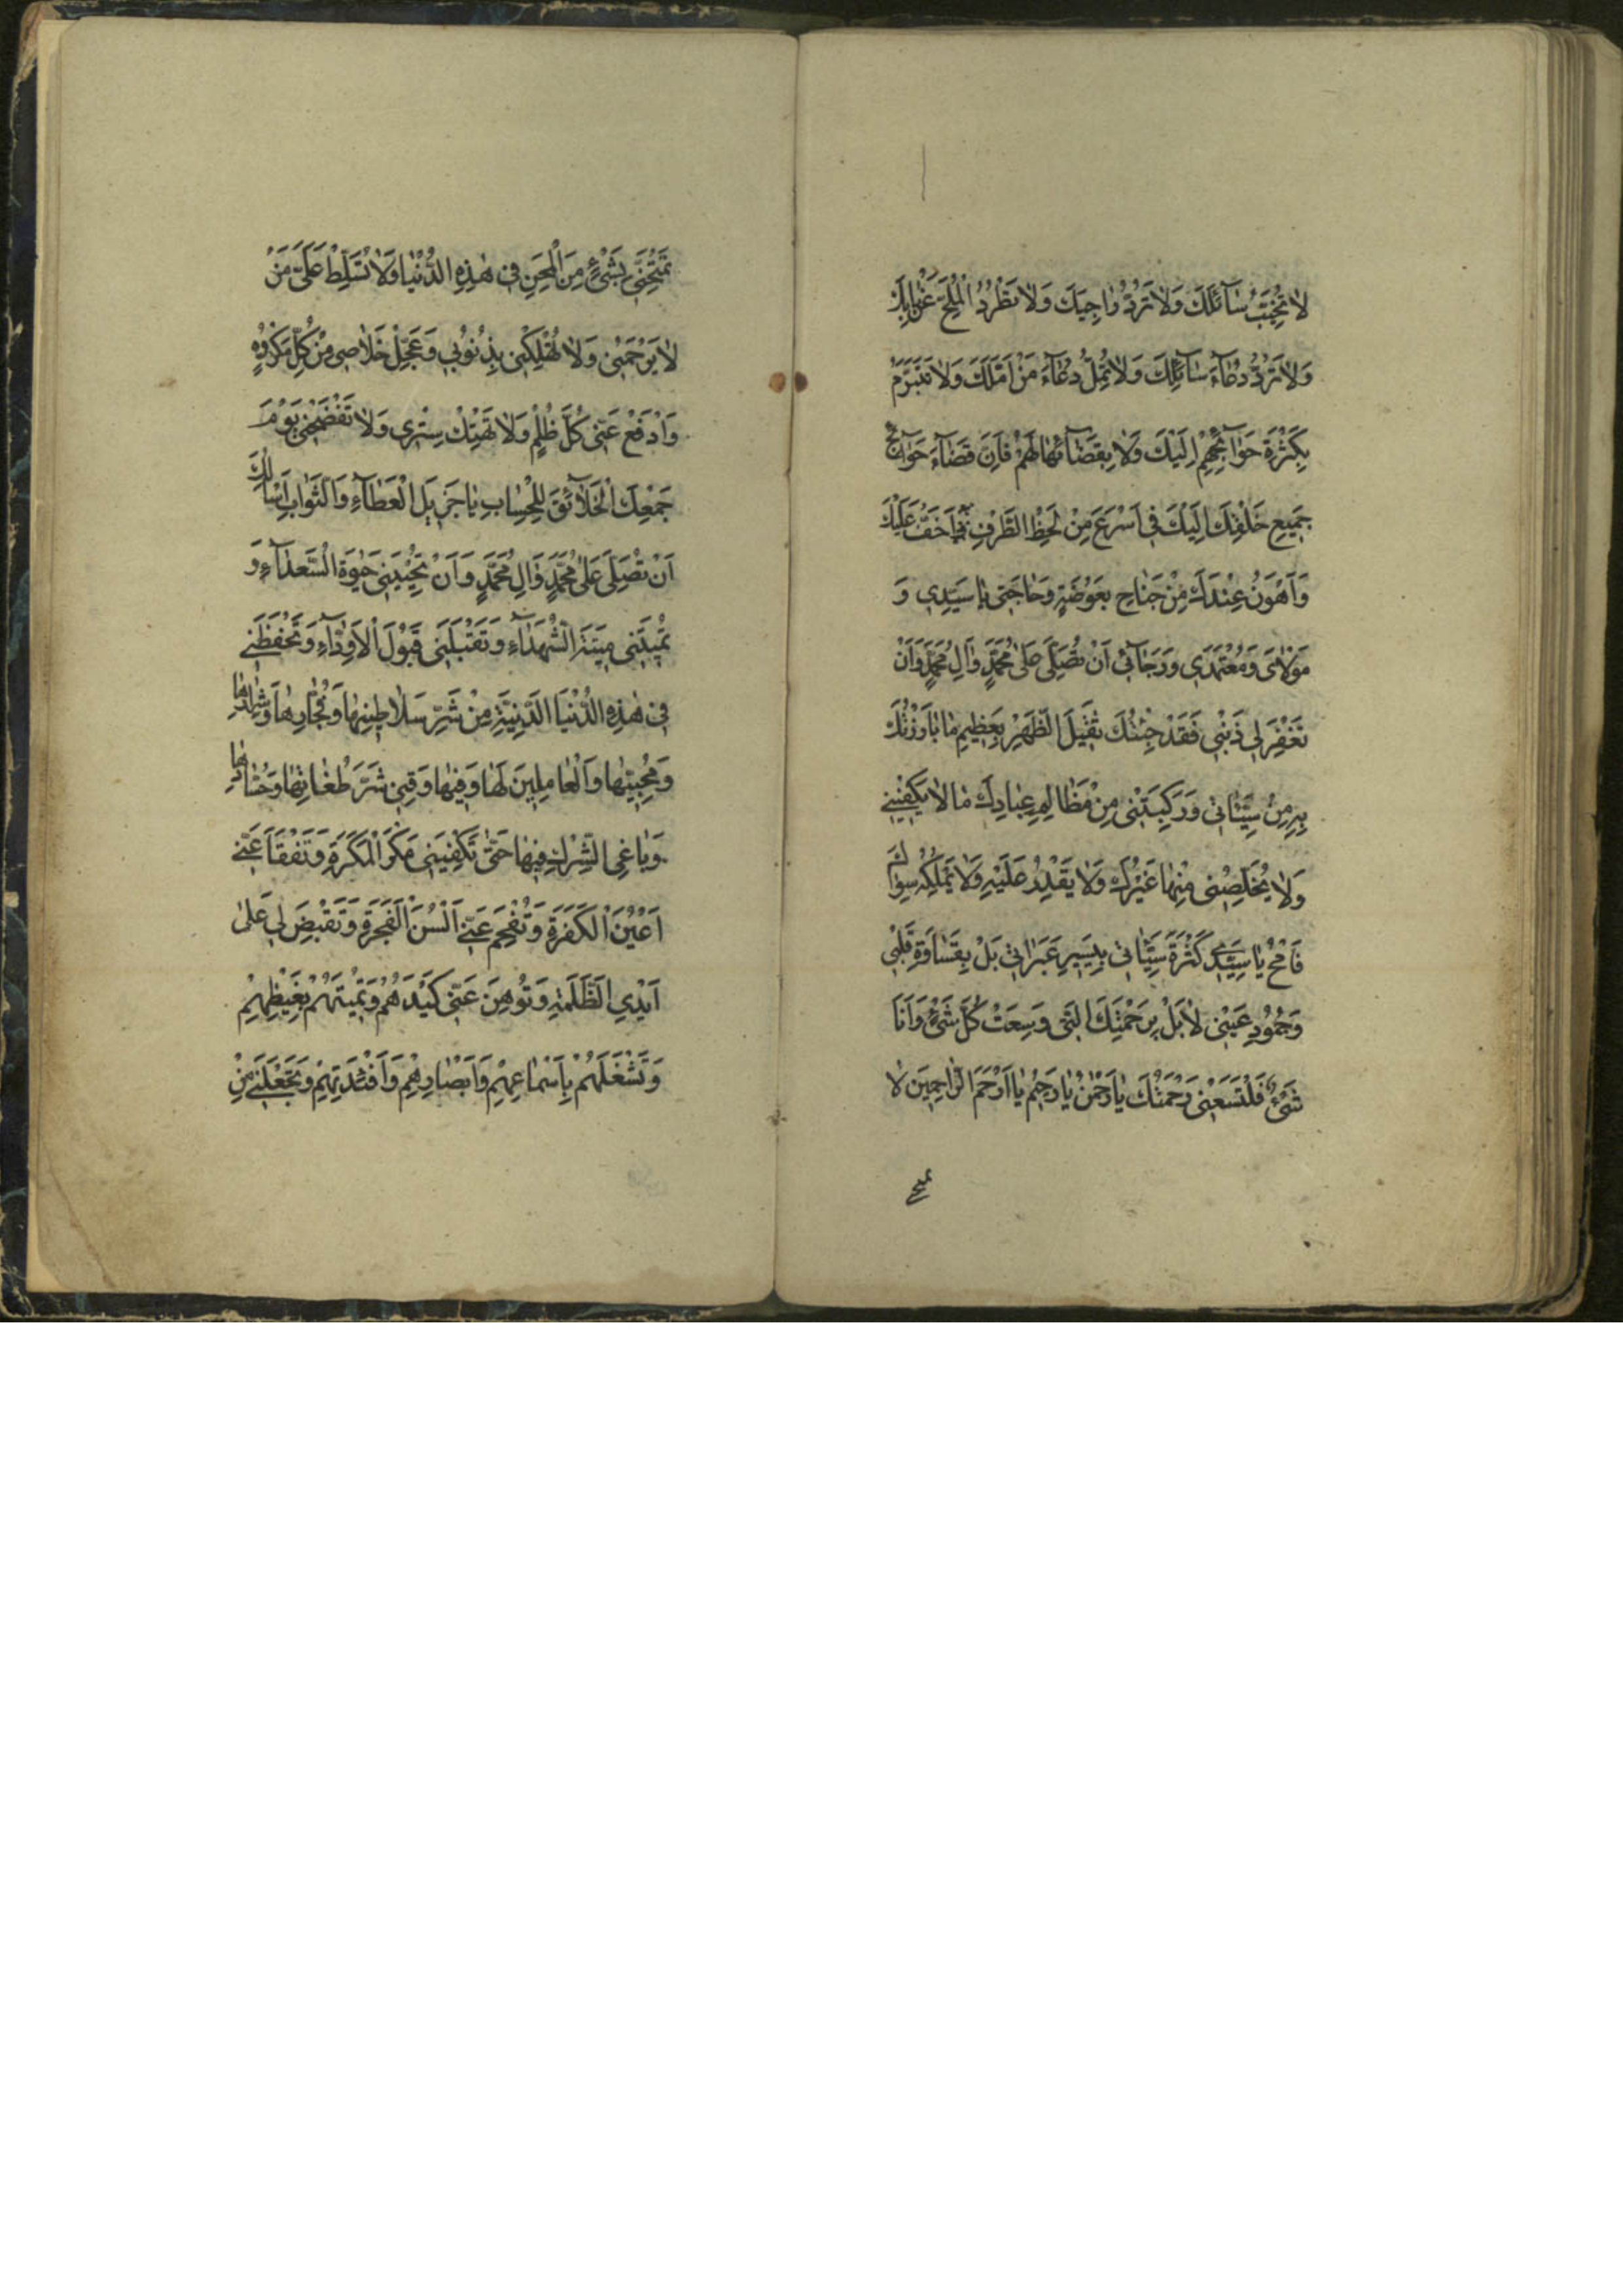 لا تُخَيِّبُ سَآئِلَكَ وَلا تَرُدُّ رٰاجِيَكَ وَلا تَطْرُدُ الْمُلِحَّ عَنْ بابِكَ
وَلا تَرُدُّ دُعٰآءَ سٰآئِلِكَ وَلا تُمِلُّ دُعٰآءَ مَنْ اَمَّلَكَ وَلا تَتَبَرَّمُ
بِكَثْرَةِ حَوٰآئِجِهِمْ اِلَيْكَ وَلا بِقَضٰآئِهٰا لَهُمْ فَاِنَّ قَضٰآءَ حَوٰآئِجِ
جَمِيعِ خَلْقِكَ اِلَيْكَ فِي اَسْرَعَ مِنْ لَحْظِ الطَّرْفِ اَخَفُّ عَلَيْكَ
وَاَهْوَنُ عِنْدَكَ مِنْ جَنٰاحِ بَعُوضَةٍ وَحٰاجَتِي يٰا سَيِّدِي وَ
مَوْلٰايَ وَمُعْتَمَدِي وَرَجٰآئِي اَنْ تُصَلِّيَ عَلىٰ مُحَمَّدٍ وَاٰلِ مُحَمَّدٍ وَاَنْ
تَغْفِرَ لِي ذَنْبِي فَقَدْ جِئْتُكَ ثَقِيلَ الظَّهْرِ بِعَظِيمِ مٰا بٰارَزْتُكَ
بِهِ مِنْ سَيِّئٰاتِي وَرَكِبَتْنِي مِنْ مَظٰالِمِ عِبٰادِكَ مٰا لا يَكْفِينِي
وَلا يُخَلِّصُنِي مِنْهٰا غَيْرُكَ وَلا يَقْدِرُ عَلَيْهِ وَلا يَمْلِكُهُ سِوٰاكَ
فَامْحُ يٰا سَيِّدِي كَثْرَةَ سَيِّئٰاتِي بِيَسِيرِ عَبَرٰاتِي بَلْ بِقَسٰاوَةِ قَلْبِي
وَجُمُودِ عَيْنِي لا بَلْ بِرَحْمَتِكَ الَّتِي وَسِعَتْ كُلَّ شَيْءٍ وَاَنَا
شَيْءٌ فَلْتَسَعْنِي رَحْمَتُكَ يٰا رَحْمٰنُ يٰا رَحِيمُ يٰا اَرْحَمَ الرّٰاحِمِينَ لا
تَمْتَحِنِّي بِشَيْءٍ مِنَ الْمِحَنِ فِي هٰذِهِ الدُّنْيٰا وَلا تُسَلِّطْ عَلَيَّ مَنْ
لا يَرْحَمُنِي وَلا تُهْلِكْنِي بِذُنُوبِي وَعَجِّلْ خَلاصِي مِنْ كُلِّ مَكْرُوهٍ
وَادْفَعْ عَنِّي كُلَّ ظُلْمٍ وَلا تَهْتِكْ سِتْرِي وَلا تَفْضَحْنِي يَوْمَ
جَمْعِكَ الْخَلآئِقَ لِلْحِسٰابِ يٰا جَزِيلَ الْعَطٰآءِ وَالثَّوٰابِ اَسْأَلُكَ
اَنْ تُصَلِّيَ عَلىٰ مُحَمَّدٍ وَاٰلِ مُحَمَّدٍ وَاَنْ تُحْيِيَنِي حَيٰوةَ السُّعَدٰآءِ وَ
تُمِيتَنِي مِيتَةَ الشُّهَدٰآءِ وَتَقْبَلَنِي قَبُولَ الْاَوِدّٰآءِ وَتَحْفَظَنِي
فِي هٰذِهِ الدُّنْيَا الدَّنِيَّةِ مِنْ شَرِّ سَلاطِينِهٰا وَفُجّٰارِهٰا وَشِرٰارِهٰا
وَمُحِبِّيهٰا وَالْعٰامِلِينَ لَهٰا وَفِيهٰا وَقِنِي شَرَّ طُغٰاتِهٰا وَحُسّٰادِهٰا
وَبٰاغِي الشِّرْكِ فِيهٰا حَتّٰى تَكْفِيَنِي مَكْرَ الْمَكَرَةِ وَتَفْقَأَ عَنِّي
اَعْيُنَ الْكَفَرَةِ وَتُفْحِمَ عَنِّي اَلْسُنَ الْفَجَرَةِ وَتَقْبِضَ لِي عَلىٰ
اَيْدِي الظَّلَمَةِ وَتُوهِنَ عَنِّي كَيْدَهُمْ وَتُمِيتَهُمْ بِغَيْظِهِمْ
وَتَشْغَلَهُمْ بِاَسْمٰاعِهِمْ وَاَبْصٰارِهِمْ وَاَفْئِدَتِهِمْ وَتَجْعَلَنِي مِنْ